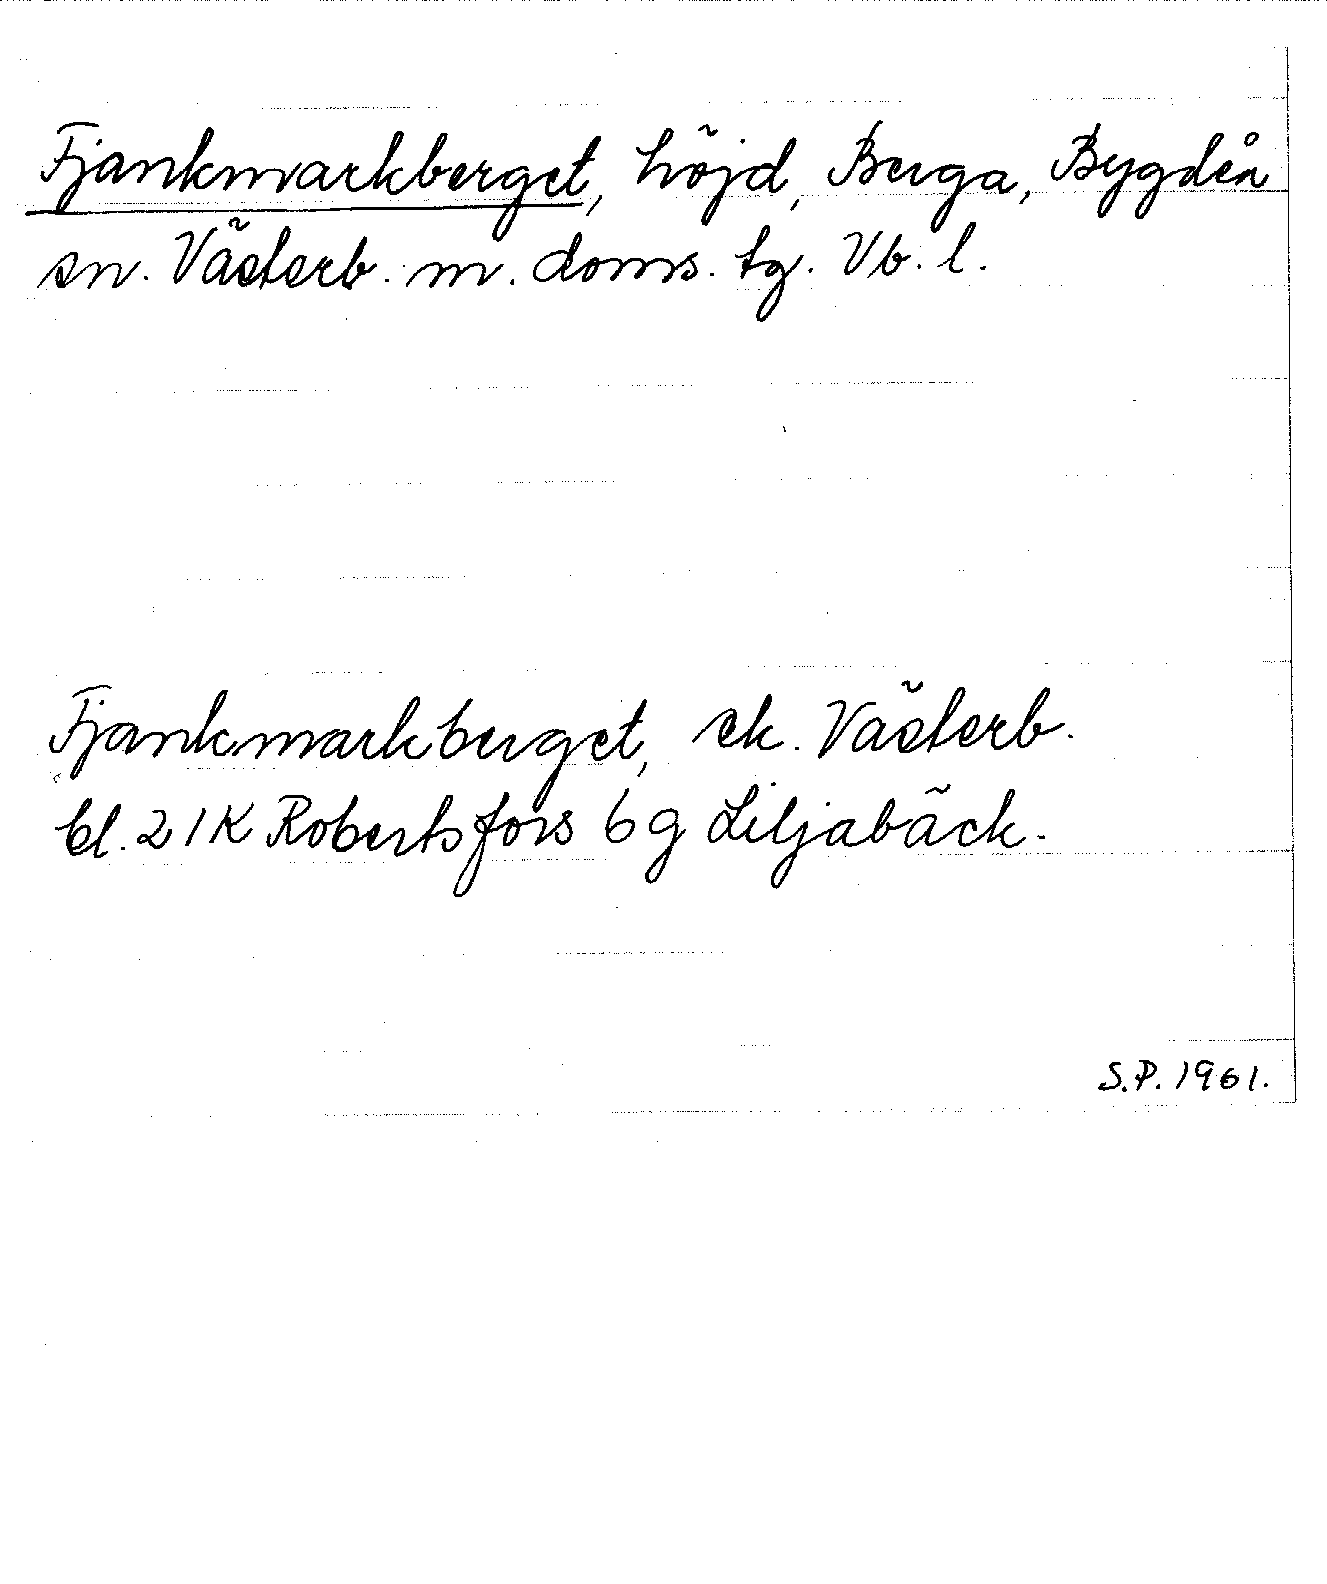 Fjankmarkberget, höjd, Berga, Bygdeå
sn. Västerb. m. doms. tg. Vb. l.
Fjankmarkberget, ek. Västerb.
bl. 21K Robertsfors 6 g Liljabäck.
S.P. 1961.